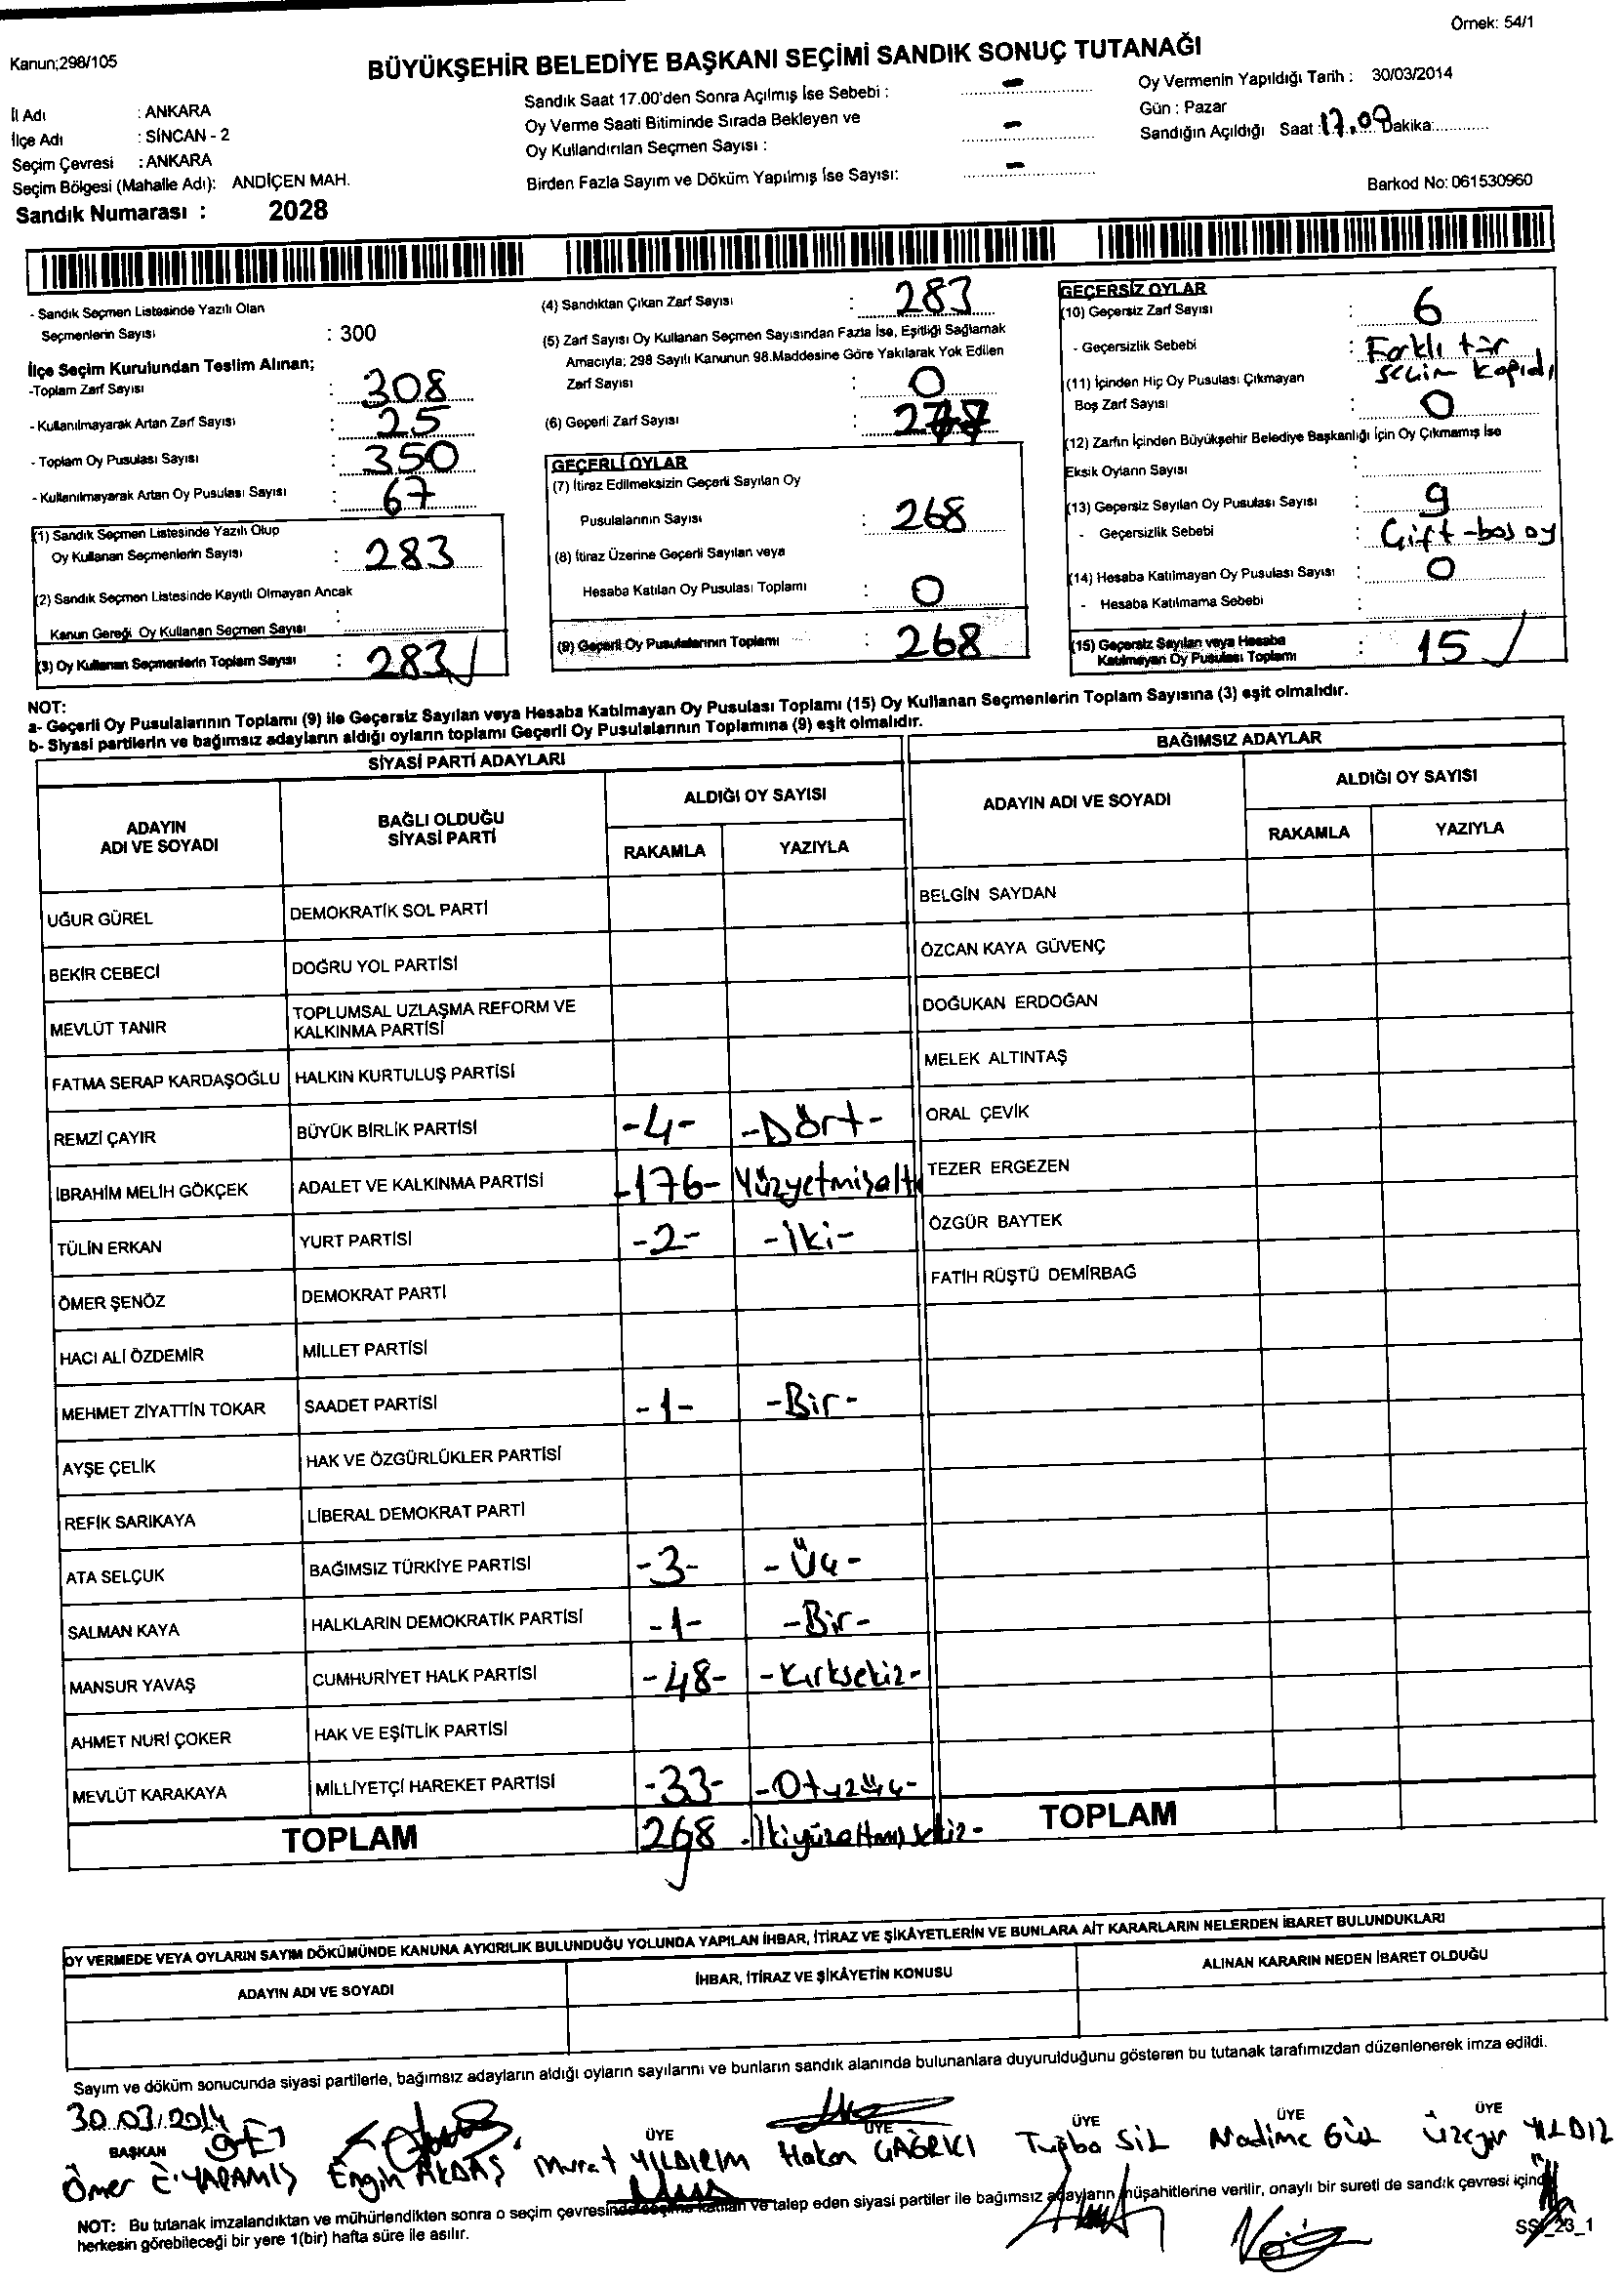 Örnek: 54/1
Kanun;298/105
BÜYÜKŞEHİR BELEDİYE BAŞKANI SEÇİMİ SANDIK SONUÇ TUTANAĞI
İl Adı : ANKARA
İlçe Adı : SİNCAN - 2
Seçim Çevresi : ANKARA
Seçim Bölgesi (Mahalle Adı): ANDİÇEN MAH.
Sandık Numarası : 2028
Sandık Saat 17.00'den Sonra Açılmış İse Sebebi : -
Oy Verme Saati Bitiminde Sırada Bekleyen ve
Oy Kullandırılan Seçmen Sayısı : -
Birden Fazla Sayım ve Döküm Yapılmış İse Sayısı: -
Oy Vermenin Yapıldığı Tarih : 30/03/2014
Gün : Pazar
Sandığın Açıldığı Saat : 17.09 Dakika:
Barkod No: 061530960
- Sandık Seçmen Listesinde Yazılı Olan
Seçmenlerin Sayısı : 300
İlçe Seçim Kurulundan Teslim Alınan;
-Toplam Zarf Sayısı : 308
- Kullanılmayarak Artan Zarf Sayısı : 25
- Toplam Oy Pusulası Sayısı : 350
- Kullanılmayarak Artan Oy Pusulası Sayısı : 67
(1) Sandık Seçmen Listesinde Yazılı Olup
Oy Kullanan Seçmenlerin Sayısı : 283
(2) Sandık Seçmen Listesinde Kayıtlı Olmayan Ancak
Kanun Gereği Oy Kullanan Seçmen Sayısı :
(3) Oy Kullanan Seçmenlerin Toplam Sayısı : 283
(4) Sandıktan Çıkan Zarf Sayısı : 283
(5) Zarf Sayısı Oy Kullanan Seçmen Sayısından Fazla İse, Eşitliği Sağlamak
Amacıyla; 298 Sayılı Kanunun 98.Maddesine Göre Yakılarak Yok Edilen
Zarf Sayısı : 0
(6) Geçerli Zarf Sayısı : 277
GEÇERLİ OYLAR
(7) İtiraz Edilmeksizin Geçerli Sayılan Oy
Pusulalarının Sayısı : 268
(8) İtiraz Üzerine Geçerli Sayılan veya
Hesaba Katılan Oy Pusulası Toplamı : 0
(9) Geçerli Oy Pusulalarının Toplamı : 268
GEÇERSİZ OYLAR
(10) Geçersiz Zarf Sayısı : 6
- Geçersizlik Sebebi : Farklı tür
seçim kağıdı
(11) İçinden Hiç Oy Pusulası Çıkmayan
Boş Zarf Sayısı : 0
(12) Zarfın İçinden Büyükşehir Belediye Başkanlığı İçin Oy Çıkmamış İse
Eksik Oyların Sayısı :
(13) Geçersiz Sayılan Oy Pusulası Sayısı : 9
- Geçersizlik Sebebi : Çift-boş oy
(14) Hesaba Katılmayan Oy Pusulası Sayısı : 0
- Hesaba Katılmama Sebebi :
(15) Geçersiz Sayılan veya Hesaba
Katılmayan Oy Pusulası Toplamı : 15
NOT:
a- Geçerli Oy Pusulalarının Toplamı (9) ile Geçersiz Sayılan veya Hesaba Katılmayan Oy Pusulası Toplamı (15) Oy Kullanan Seçmenlerin Toplam Sayısına (3) eşit olmalıdır.
b- Siyasi partilerin ve bağımsız adayların aldığı oyların toplamı Geçerli Oy Pusulalarının Toplamına (9) eşit olmalıdır.
SİYASİ PARTİ ADAYLARI
ADAYIN ADI VE SOYADI BAĞLI OLDUĞU SİYASİ PARTİ ALDIĞI OY SAYISI
RAKAMLA YAZIYLA
UĞUR GÜREL DEMOKRATİK SOL PARTİ
BEKİR CEBECİ DOĞRU YOL PARTİSİ
MEVLÜT TANIR TOPLUMSAL UZLAŞMA REFORM VE KALKINMA PARTİSİ
FATMA SERAP KARDAŞOĞLU HALKIN KURTULUŞ PARTİSİ
REMZİ ÇAYIR BÜYÜK BİRLİK PARTİSİ -4- -Dört-
İBRAHİM MELİH GÖKÇEK ADALET VE KALKINMA PARTİSİ -176- Yüzyetmişaltı
TÜLİN ERKAN YURT PARTİSİ -2- -İki-
ÖMER ŞENÖZ DEMOKRAT PARTİ
HACI ALİ ÖZDEMİR MİLLET PARTİSİ
MEHMET ZİYATTİN TOKAR SAADET PARTİSİ -1- -Bir-
AYŞE ÇELİK HAK VE ÖZGÜRLÜKLER PARTİSİ
REFİK SARIKAYA LİBERAL DEMOKRAT PARTİ
ATA SELÇUK BAĞIMSIZ TÜRKİYE PARTİSİ -3- -Üç-
SALMAN KAYA HALKLARIN DEMOKRATİK PARTİSİ -1- -Bir-
MANSUR YAVAŞ CUMHURİYET HALK PARTİSİ -48- -Kırksekiz-
AHMET NURİ ÇOKER HAK VE EŞİTLİK PARTİSİ
MEVLÜT KARAKAYA MİLLİYETÇİ HAREKET PARTİSİ -33- -Otuzüç-
TOPLAM 268 -İkiyüzaltmışsekiz-
BAĞIMSIZ ADAYLAR
ADAYIN ADI VE SOYADI ALDIĞI OY SAYISI
RAKAMLA YAZIYLA
BELGİN SAYDAN
ÖZCAN KAYA GÜVENÇ
DOĞUKAN ERDOĞAN
MELEK ALTINTAŞ
ORAL ÇEVİK
TEZER ERGEZEN
ÖZGÜR BAYTEK
FATİH RÜŞTÜ DEMİRBAĞ
TOPLAM
OY VERMEDE VEYA OYLARIN SAYIM DÖKÜMÜNDE KANUNA AYKIRILIK BULUNDUĞU YOLUNDA YAPILAN İHBAR, İTİRAZ VE ŞİKÂYETLERİN VE BUNLARA AİT KARARLARIN NELERDEN İBARET BULUNDUKLARI
ADAYIN ADI VE SOYADI İHBAR, İTİRAZ VE ŞİKÂYETİN KONUSU ALINAN KARARIN NEDEN İBARET OLDUĞU
Sayım ve döküm sonucunda siyasi partilerle, bağımsız adayların aldığı oyların sayılarını ve bunların sandık alanında bulunanlara duyurulduğunu gösteren bu tutanak tarafımızdan düzenlenerek imza edildi.
30.03.2014
BAŞKAN ÜYE ÜYE ÜYE ÜYE ÜYE
Ömer E. YARAMIŞ Engin AKBAŞ Murat YILDIRIM Hakan ÇAĞRICI Tuğba SİL Nadime Gül Üzeyir YILDIZ
NOT: Bu tutanak imzalandıktan ve mühürlendikten sonra o seçim çevresinde seçime katılan ve talep eden siyasi partiler ile bağımsız adayların müşahitlerine verilir, onaylı bir sureti de sandık çevresi içinde
herkesin görebileceği bir yere 1(bir) hafta süre ile asılır.